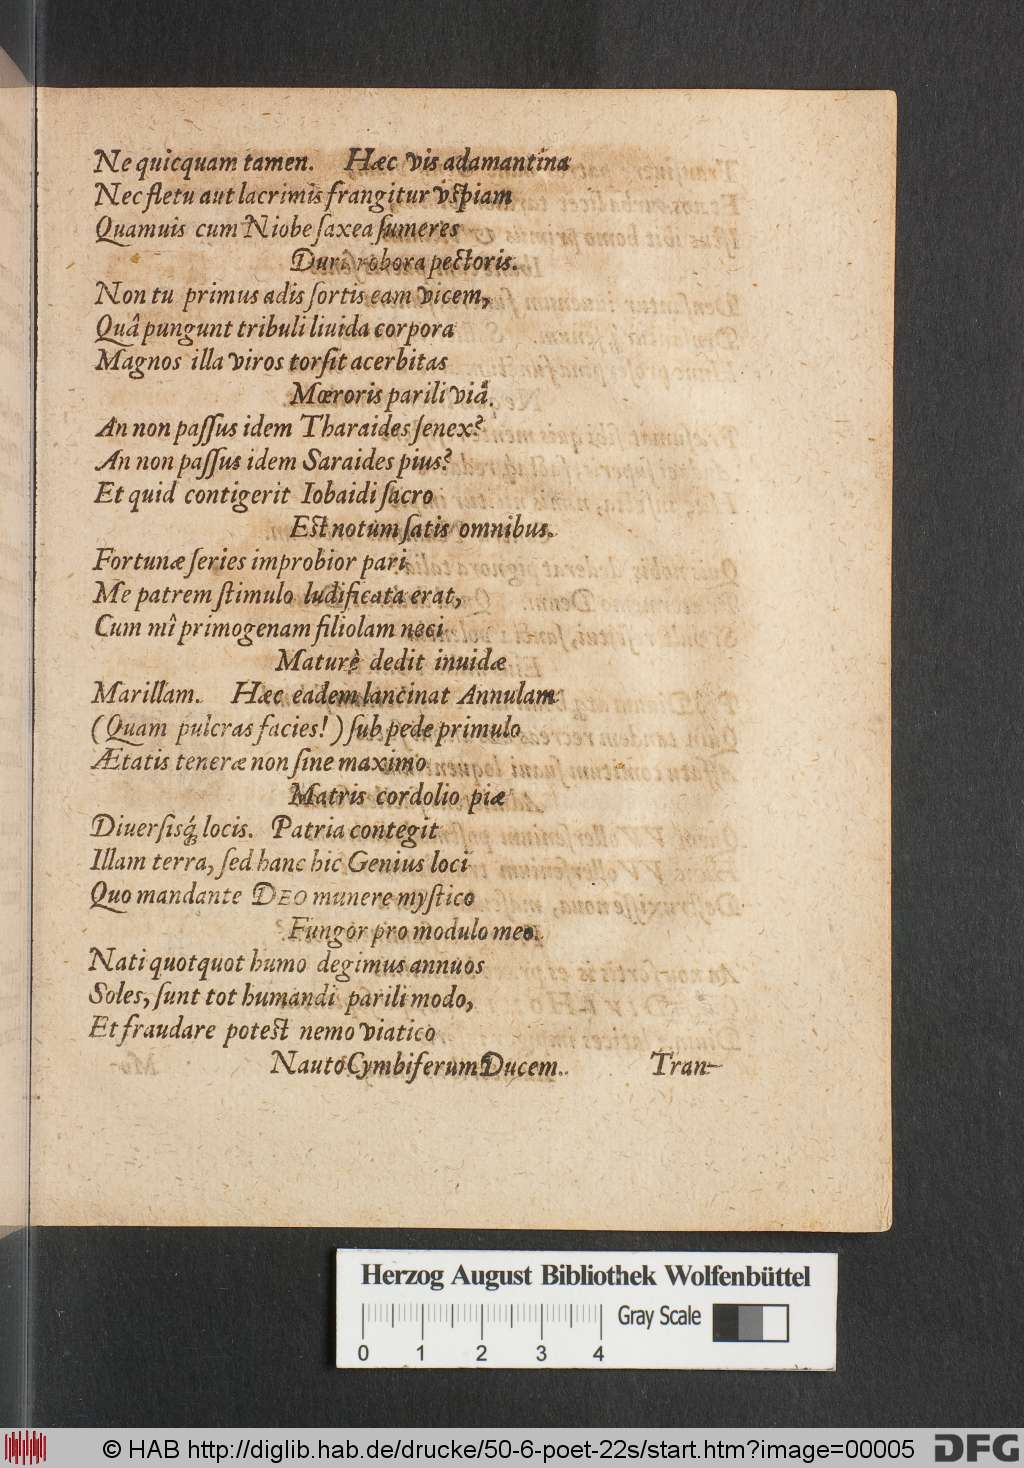 Ne quicquam tamen. Hæc vis adamantina
Nec fletu aut lacrimis frangitur vſpiam
Quamuis cum Niobe ſaxea ſumeres
Duri robora pectoris.
Non tu primus adis ſortis eam vicem,
Quâ pungunt tribuli liuida corpora
Magnos illa viros torſit acerbitas
Mœroris parili viâ.
An non paſſus idem Tharaides ſenex?
An non paſſus idem Saraides pius?
Et quid contigerit Iobaidi ſacro
Eſt notum ſatis omnibus.
Fortunæ ſeries improbior pari
Me patrem ſtimulo ludificata erat,
Cum mî primogenam filiolam neci
Maturè dedit inuidæ
Marillam. Hæc eadem lancinat Annulam
(Quam pulcras facies!) ſub pede primulo
Ætatis teneræ non ſine maximo
Matris cordolio piæ
Diuerſisq́; locis. Patria contegit
Illam terra, ſed hanc hic Genius loci
Quo mandante DEO munere myſtico
Fungor pro modulo meo.
Nati quotquot humo degimus annuos
Soles, ſunt tot humandi parili modo,
Et fraudare poteſt nemo viatico
Nauto Cymbiferum Ducem.
Tran-
Herzog August Bibliothek Wolfenbüttel
Gray Scale
0 1 2 3 4
© HAB http://diglib.hab.de/drucke/50-6-poet-22s/start.htm?image=00005
DFG